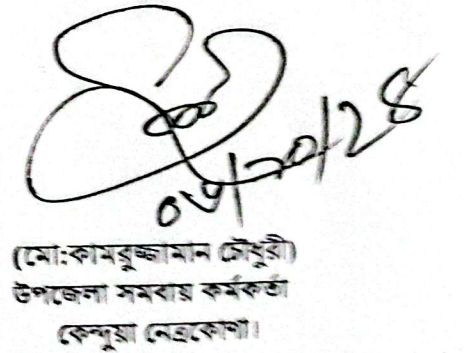 ০৬/১০/২৪
(মোঃকামরুজ্জামান চৌধুরী)
উপজেলা সমবায় কর্মকর্তা
কেন্দুয়া নেত্রকোণা।